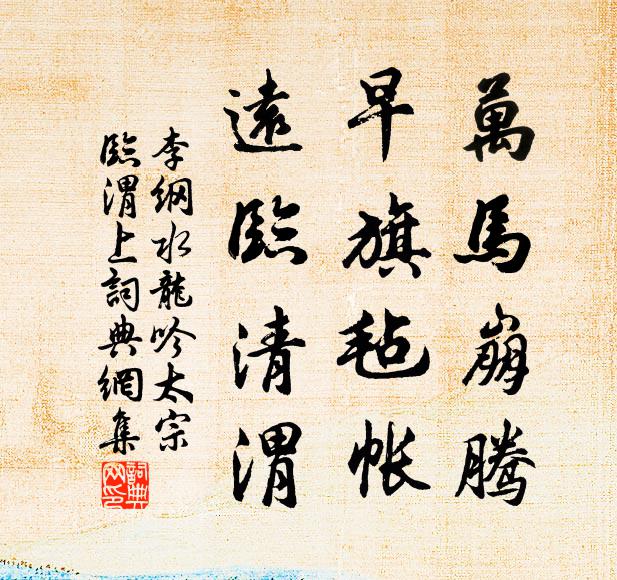 萬馬崩騰
早旗毡帐
遠臨清渭
李綱水龍吟太宗
臨渭上詞典網集
詞典网印